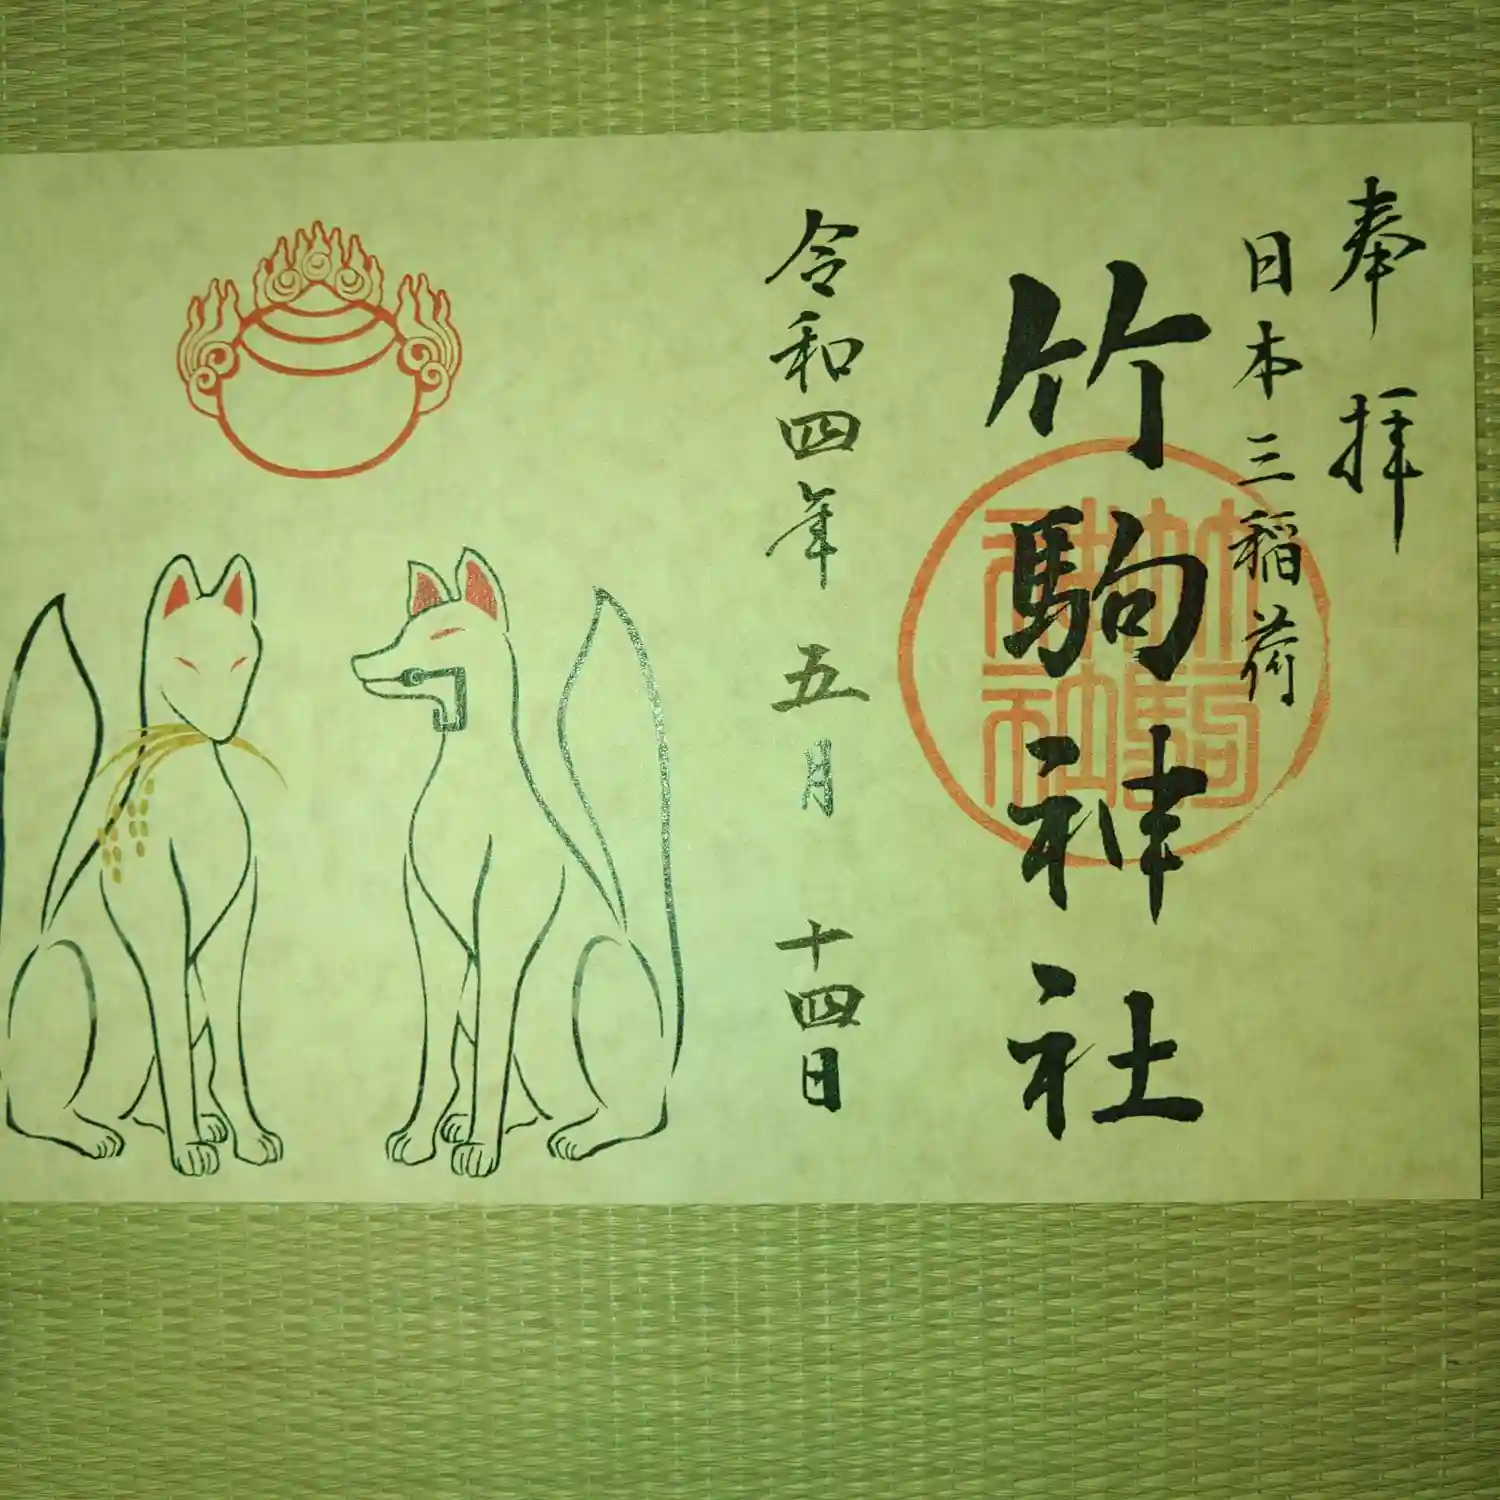 奉拝
日本三稲荷
竹駒神社
令和四年五月十四日